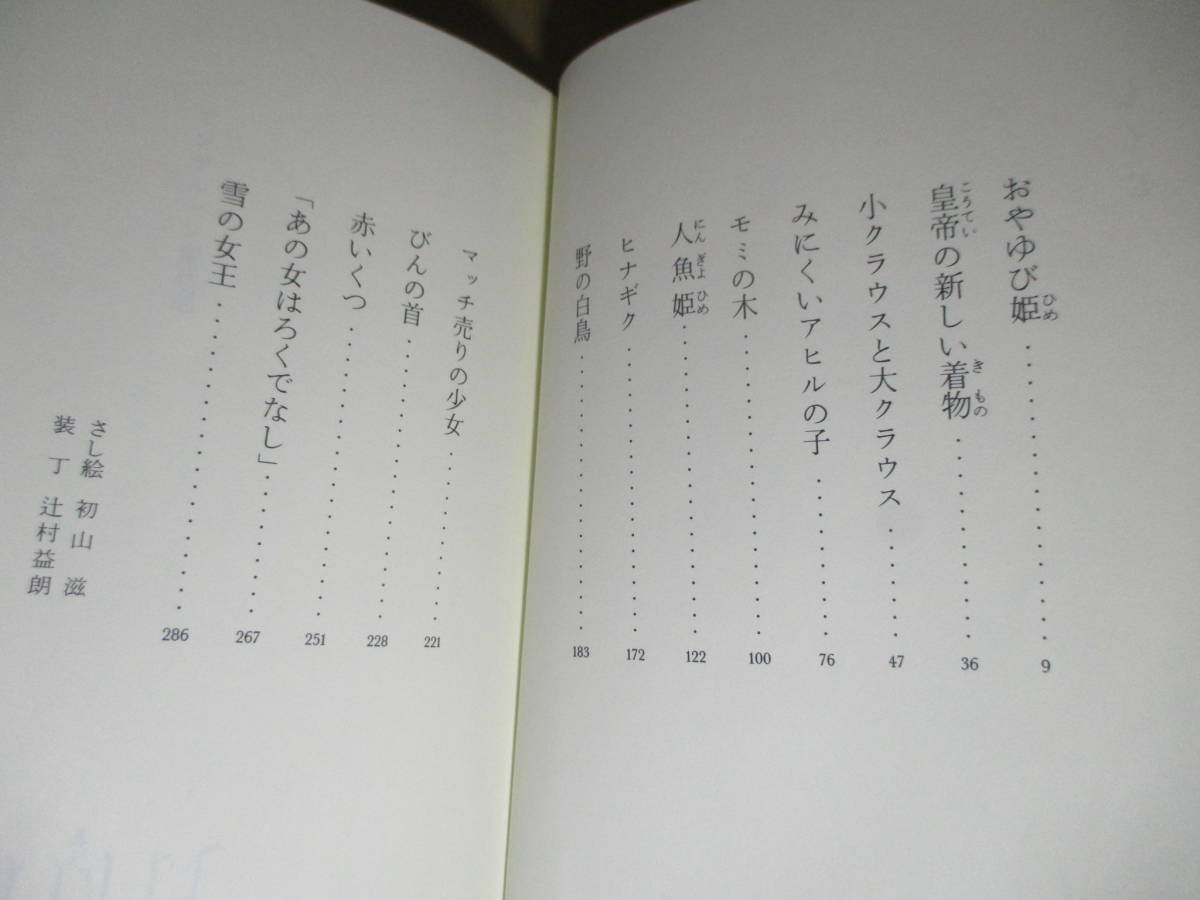 おやゆび姫 ひめ . . . . . . . . . . . . . . . 9
皇帝の新しい着物 こうてい き もの . . . . . . . . . . 36
小クラウスと大クラウス . . . . . . . 47
みにくいアヒルの子 . . . . . . . . 76
モミの木 . . . . . . . . . . . . . . . 100
人魚姫 にん ぎよ ひめ . . . . . . . . . . . . . . . 122
ヒナギク . . . . . . . . . . . . . . . 172
野の白鳥 . . . . . . . . . . . . . . . 183
マッチ売りの少女 . . . . . . . . . . 221
びんの首 . . . . . . . . . . . . . . . 228
赤いくつ . . . . . . . . . . . . . . . 251
「あの女はろくでなし」 . . . . . . . . 267
雪の女王 . . . . . . . . . . . . . . . 286
さし絵 初山 滋
装丁 辻村益朗